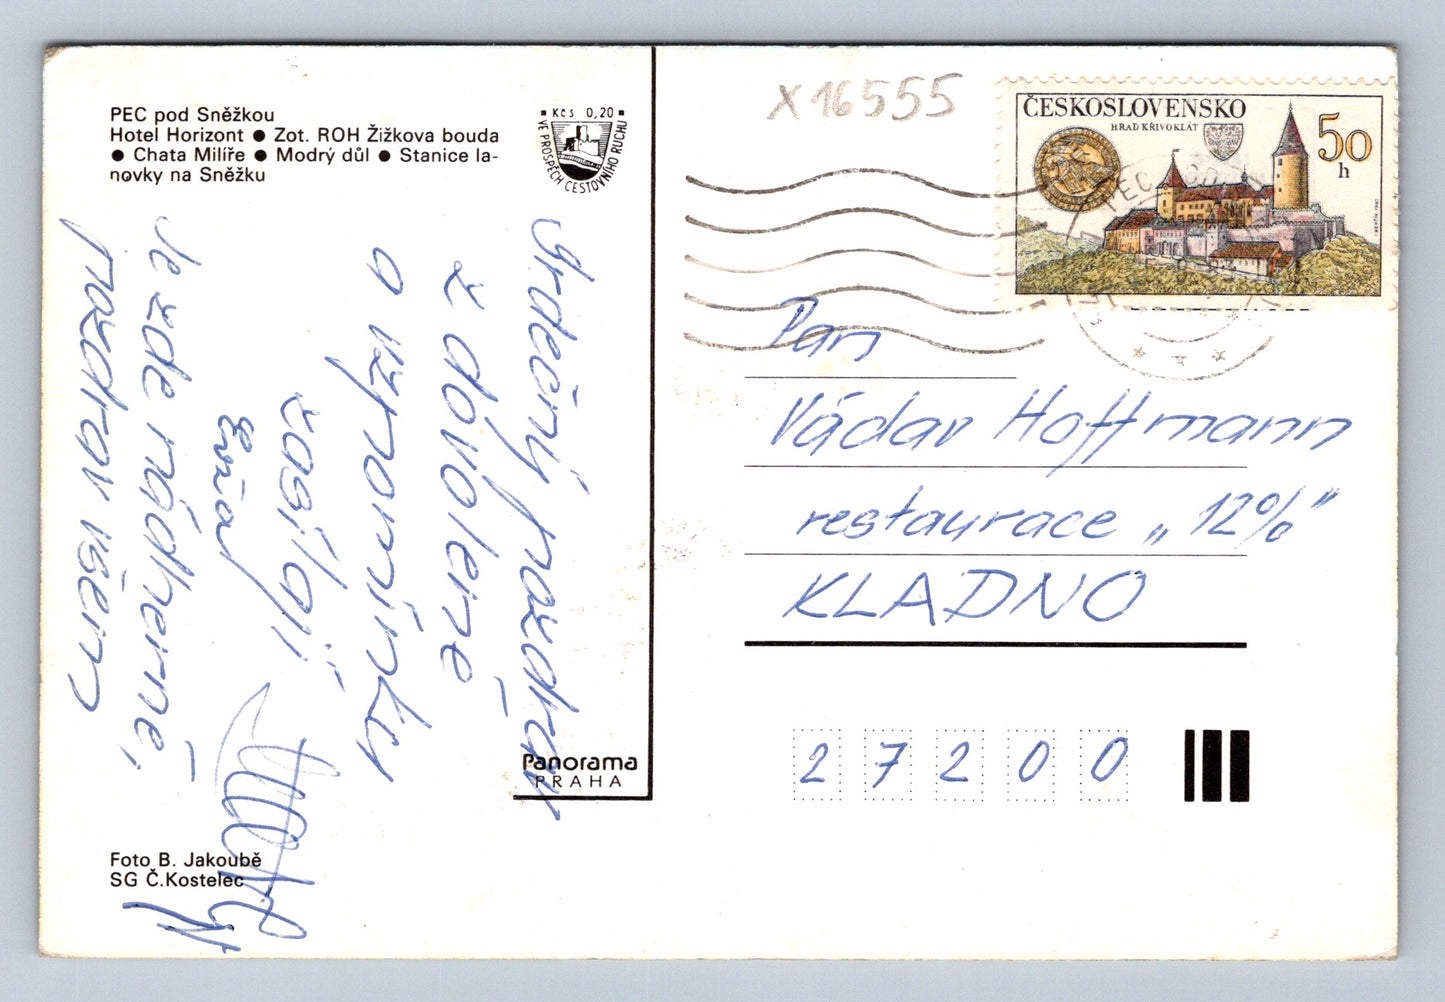 PEC pod Sněžkou
Hotel Horizont ● Zot. ROH Žižkova bouda
● Chata Milíře ● Modrý důl ● Stanice la-
novky na Sněžku
Kčs 0,20
VE PROSPĚCH CESTOVNÍHO RUCHU
Srdečný pozdrav
z dovolené
a vzpomínky
zasílají
Je zde nádherně,
pozdrav všem
Panorama
PRAHA
Foto B. Jakoubě
SG Č.Kostelec
X 16555
ČESKOSLOVENSKO
HRAD KŘIVOKLÁT
50
h
PEC POD
Pan
Václav Hoffmann
restaurace „12%"
KLADNO
27200